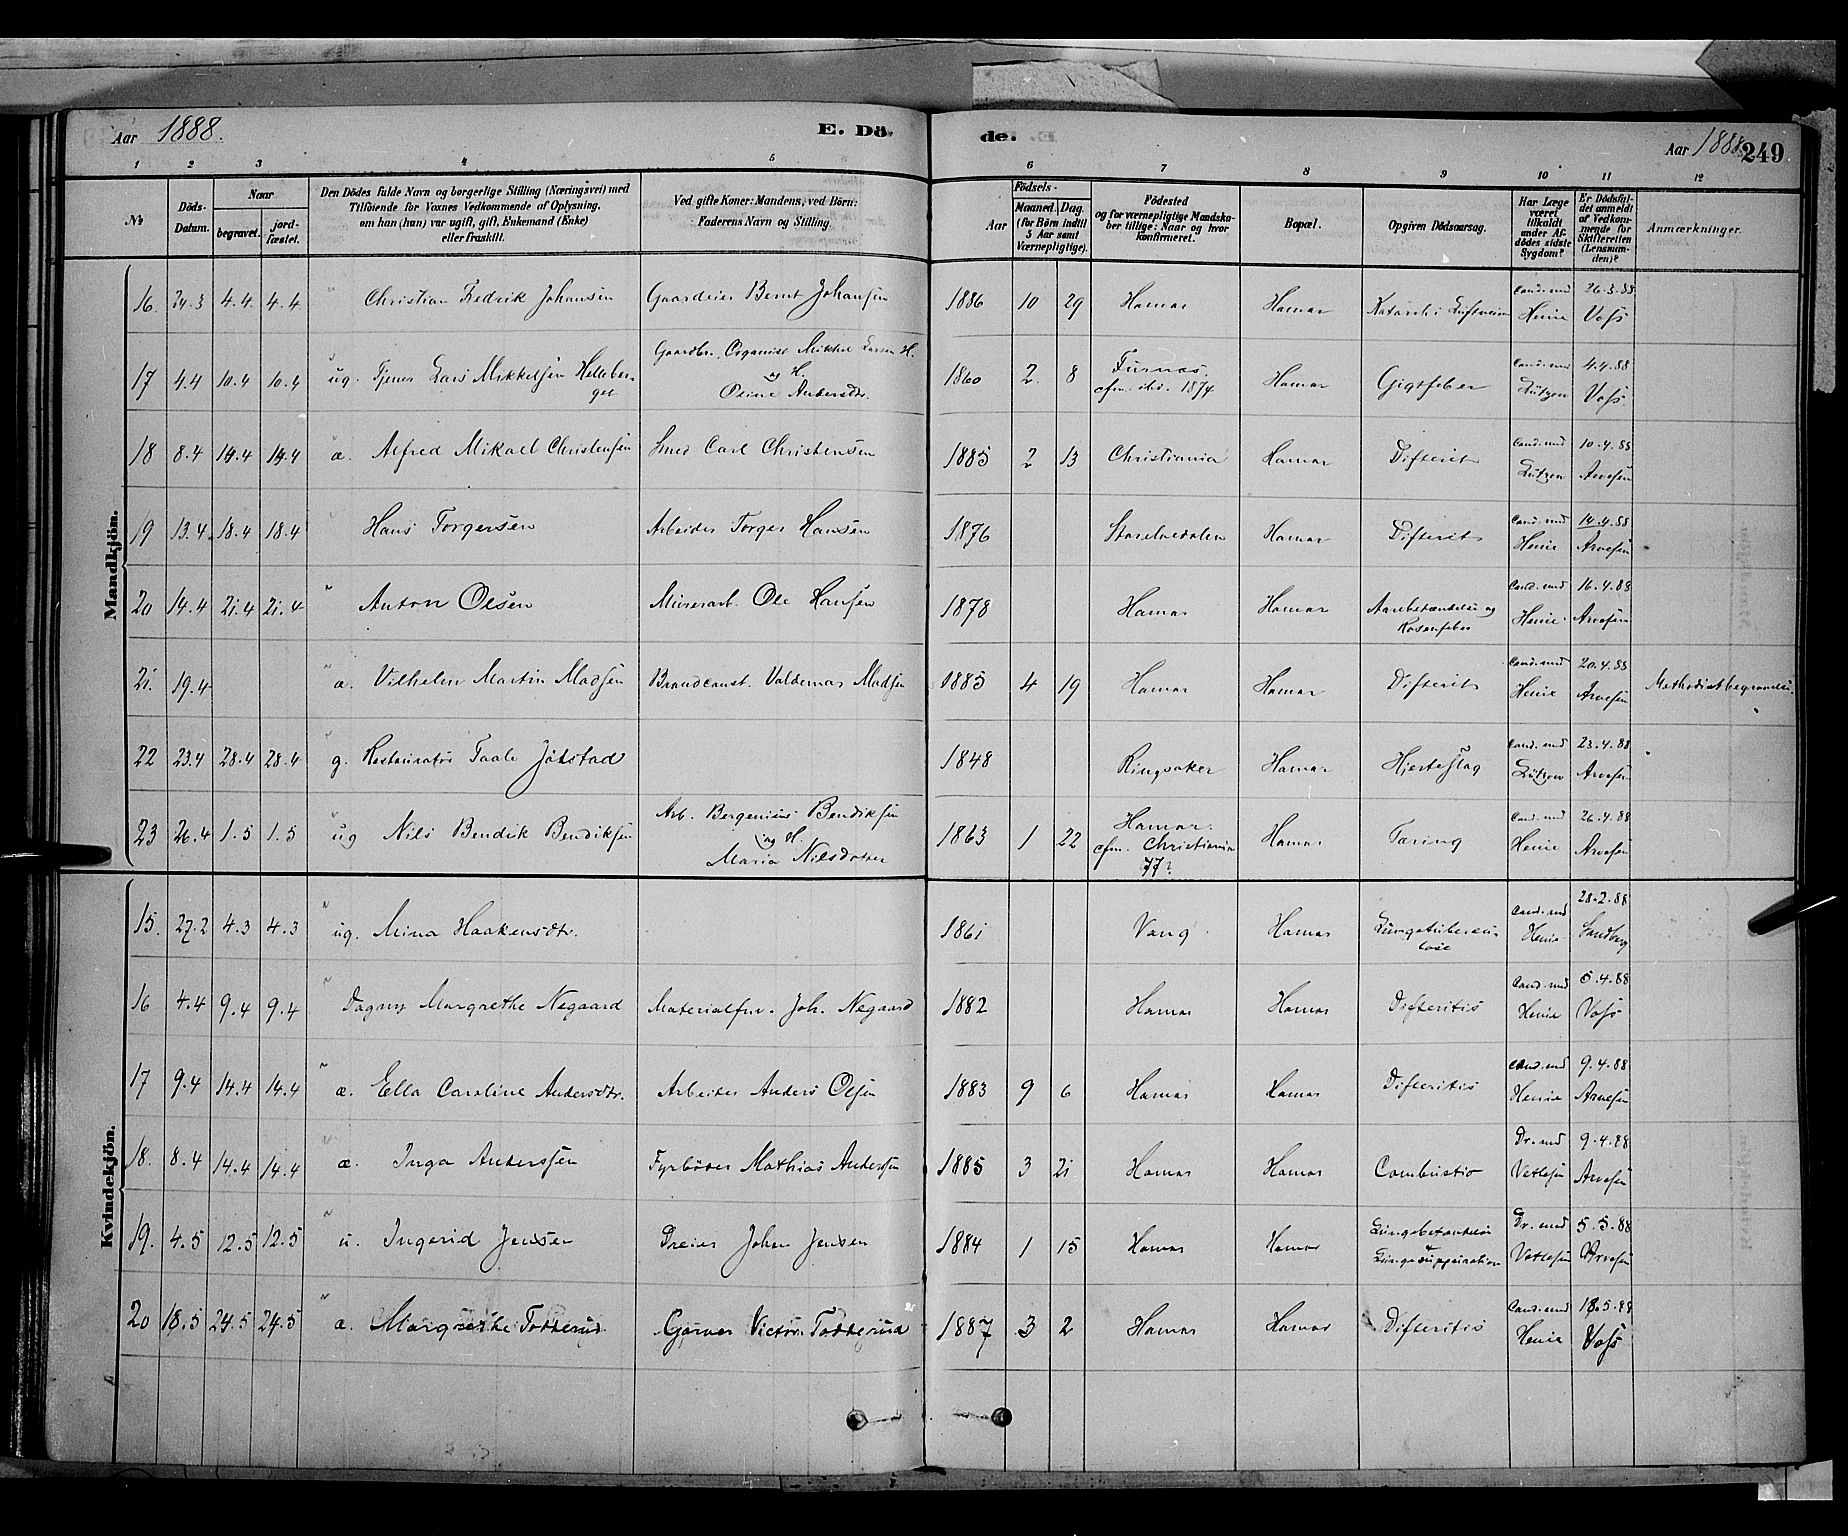 Aar 1888.
E. Dö- de.
Aar 1888.
249
1 2 3 4 5 6 7 8 9 10 11 12
No
Döds-Datum.
Naar
begravet.
jordfæstet.
Den Dödes fulde Navn og borgerlige Stilling (Næringsvei) med
Tilföiende for Voxnes Vedkommende af Oplysning,
om han (hun) var ugift, gift, Enkemand (Enke)
eller fraskilt.
Ved gifte Koner: Mandens, ved Börn:
Faderens Navn og Stilling.
Födsels-
Aar
Maaned. Dag.
(for Börn indtil
5 Aar samt
Værnepligtige).
Födested
og for værnepligtige Mandska-
ber tillige: Naar og hvor
konfirmeret.
Bopæl.
Opgiven Dödsaarsag.
Har Læge
været
tilkaldt
under Af-
dödes sidste
Sygdom?
Er Dödsfal-
det anmeldt
af Vedkom-
mende for
Skifteretten
(Lensman-
den)?
Anmærkninger.
Mandkjön.
16. 24.3 4.4. 4.4. " Christian Fredrik Johansen Gaardeier Bernt Johansen 1886 10 29 Hamar Hamar Katarrh i Luftveiene Cand. med Henie 26.3.88 Voss
17 4.4 10.4 10.4 ug. Tjener Lars Mikkelsen Helleberget Gaardbr. Organist Mikkel Larsen H. og H. Oline Andersdtr. 1860 2. 8 Furnes. cfm. ibd. 1874 Hamar Gigtfeber Cand. med Lützow 4.4.88 Voss.
18 8.4 14.4 14.4 " æ. Alfred Mikael Christensen Smed Carl Christensen 1885 2 13 Christiania Hamar Difterit Cand. med Lützow 10.4.88 Arvesen
19 13.4. 18.4 18.4 " Hans Torgersen Arbeider Torger Hansen 1876 Storelvedalen Hamar Difterit Cand. med Henie 14.4.88 Arvesen
20 14.4 21.4 21.4 " Anton Olsen Murerarb. Ole Hansen 1878 Hamar Hamar Aarebetændelse og Rosenfeber Cand. med Henie. 16.4.88 Arvesen
21. 19.4 " æ. Vilhelm Martin Madsen Brandconst. Valdemar Madsen 1885 4 19 Hamar Hamar Difterit Cand. med Henie 20.4.88 Arvesen Methodistbegravelse.
22 23.4 28.4 28.4 " g. Restauratør Taale Jølstad 1848 Ringsaker Hamar Hjerteslag Cand. med Lützow 23.4.88 Arvesen
23 26.4 1.5 1.5 " ug Nils Bendik Bendiksen Arb. Bergenius Bendiksen og H. Maria Nilsdotter 1863 1 22 Hamar. cfm. Christiania 77? Hamar Tæring Cand. med Henie 26.4.88 Arvesen
Kvindekjön.
15. 27.2 4.3 4.3 " ug. Mina Haakensdtr. 1861 Vang Hamar Lungetuberculose Cand. med Henie 28.2.88 Sandberg
16 4.4 9.4 9.4 " Dagny Margrethe Negaard Materialforv. Joh. Negaard 1882 Hamar Hamar Difteritis Cand. med Henie 5.4.88 Voss
17 9.4 14.4 14.4 " æ. Ella Caroline Andersdtr. Arbeider Anders Olsen 1883 9 6 Hamar Hamar Difteritis Cand. med Henie 9.4.88 Arvesen
18. 8.4 14.4 14.4 " æ. Inga Anderssen Fyrbøder Mathias Anderssen 1885 3 21 Hamar Hamar Combustio Dr. med Vetlesen 9.4.88 Arvesen
19. 4.5 12.5 12.5 " u. Ingerid Jensen Dreier Johan Jensen 1884 1 15 Hamar Hamar Lungebetændelse Lungesuppuration Dr. med Vetlesen 5.5.88 Arvesen
20 18.5 24.5 24.5 " æ. Margrethe Totterud Garver Victor Totterud 1887 3 2 Hamar Hamar Difteritis Cand. med Henie 18.5.88 Voss